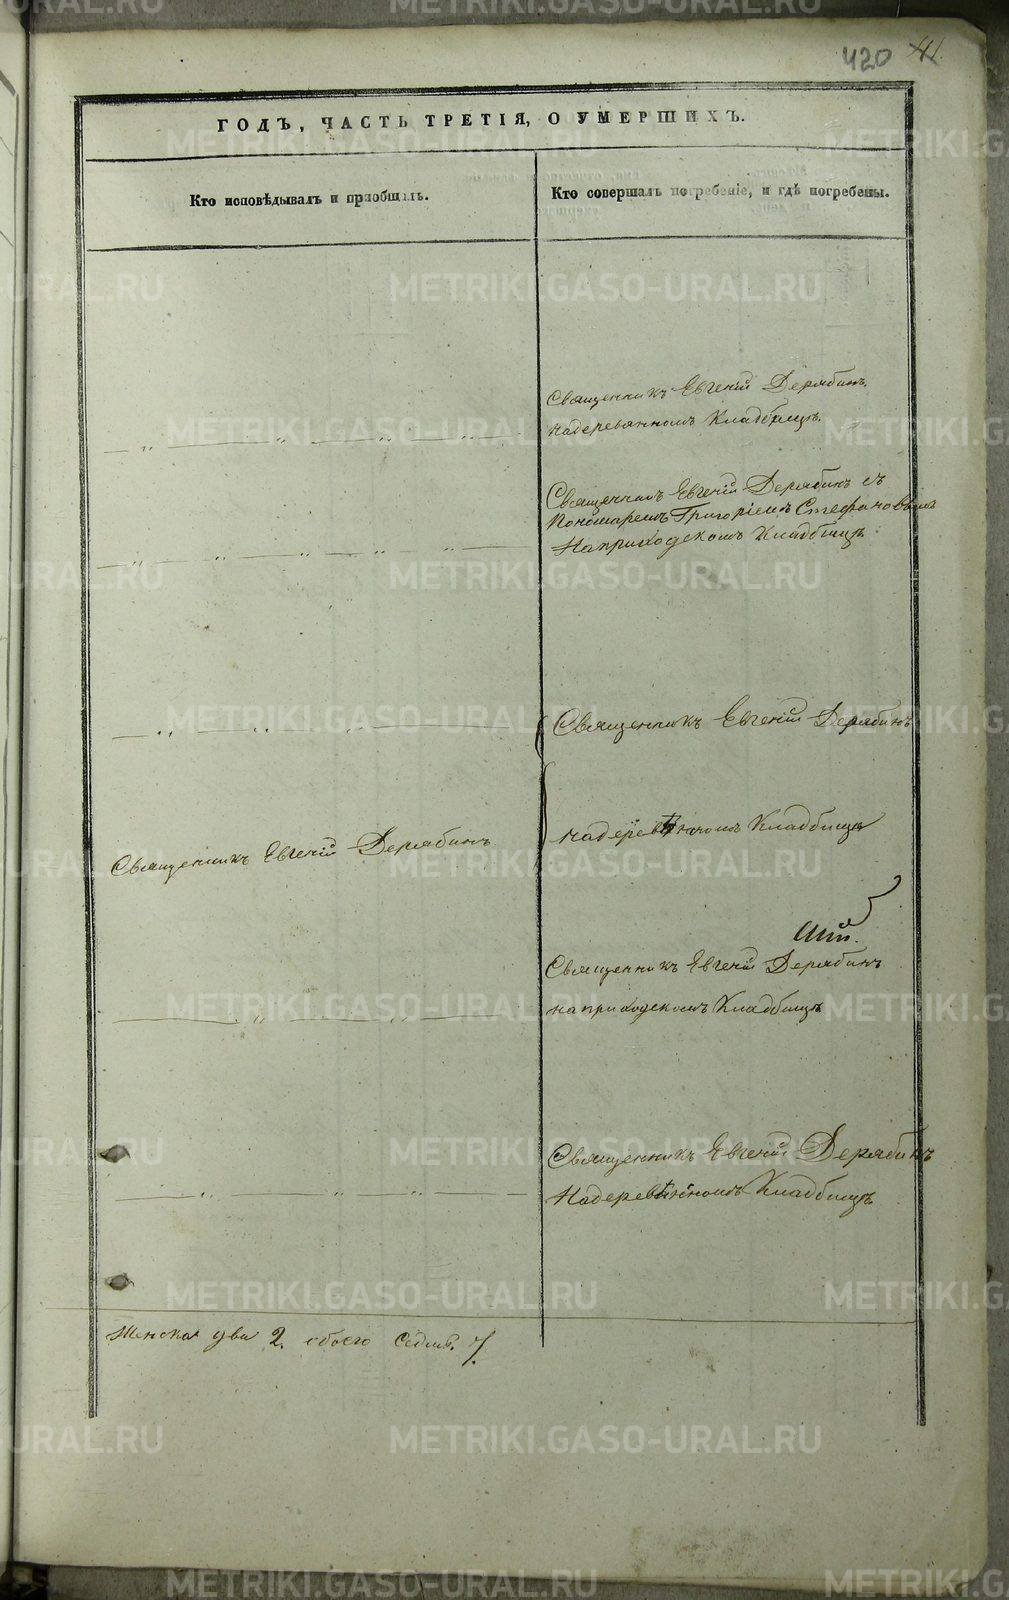 420 41
ГОДЪ, ЧАСТЬ ТРЕТІЯ, О УМЕРШИХЪ.
Кто исповѣдывалъ и пріобщалъ.
Кто совершалъ погребеніе, и гдѣ погребены.
Священникъ Евгеній Дерябинъ
на деревянномъ Кладбищѣ.
Священникъ Евгеній Дерябинъ съ
Пономаремъ Григоріемъ Стефановымъ
На приходскомъ Кладбищѣ
Священникъ Евгеній Дерябинъ
на деревѣнномъ Кладбищѣ
Священникъ Евгеній Дерябинъ
Священникъ Евгеній Дерябинъ
на приходскомъ Кладбищѣ
Священникъ Евгеній Дерябинъ
На деревѣнномъ Кладбищѣ
Женска два 2. обоего Седмь. 7.
METRIKI.GASO-URAL.RU